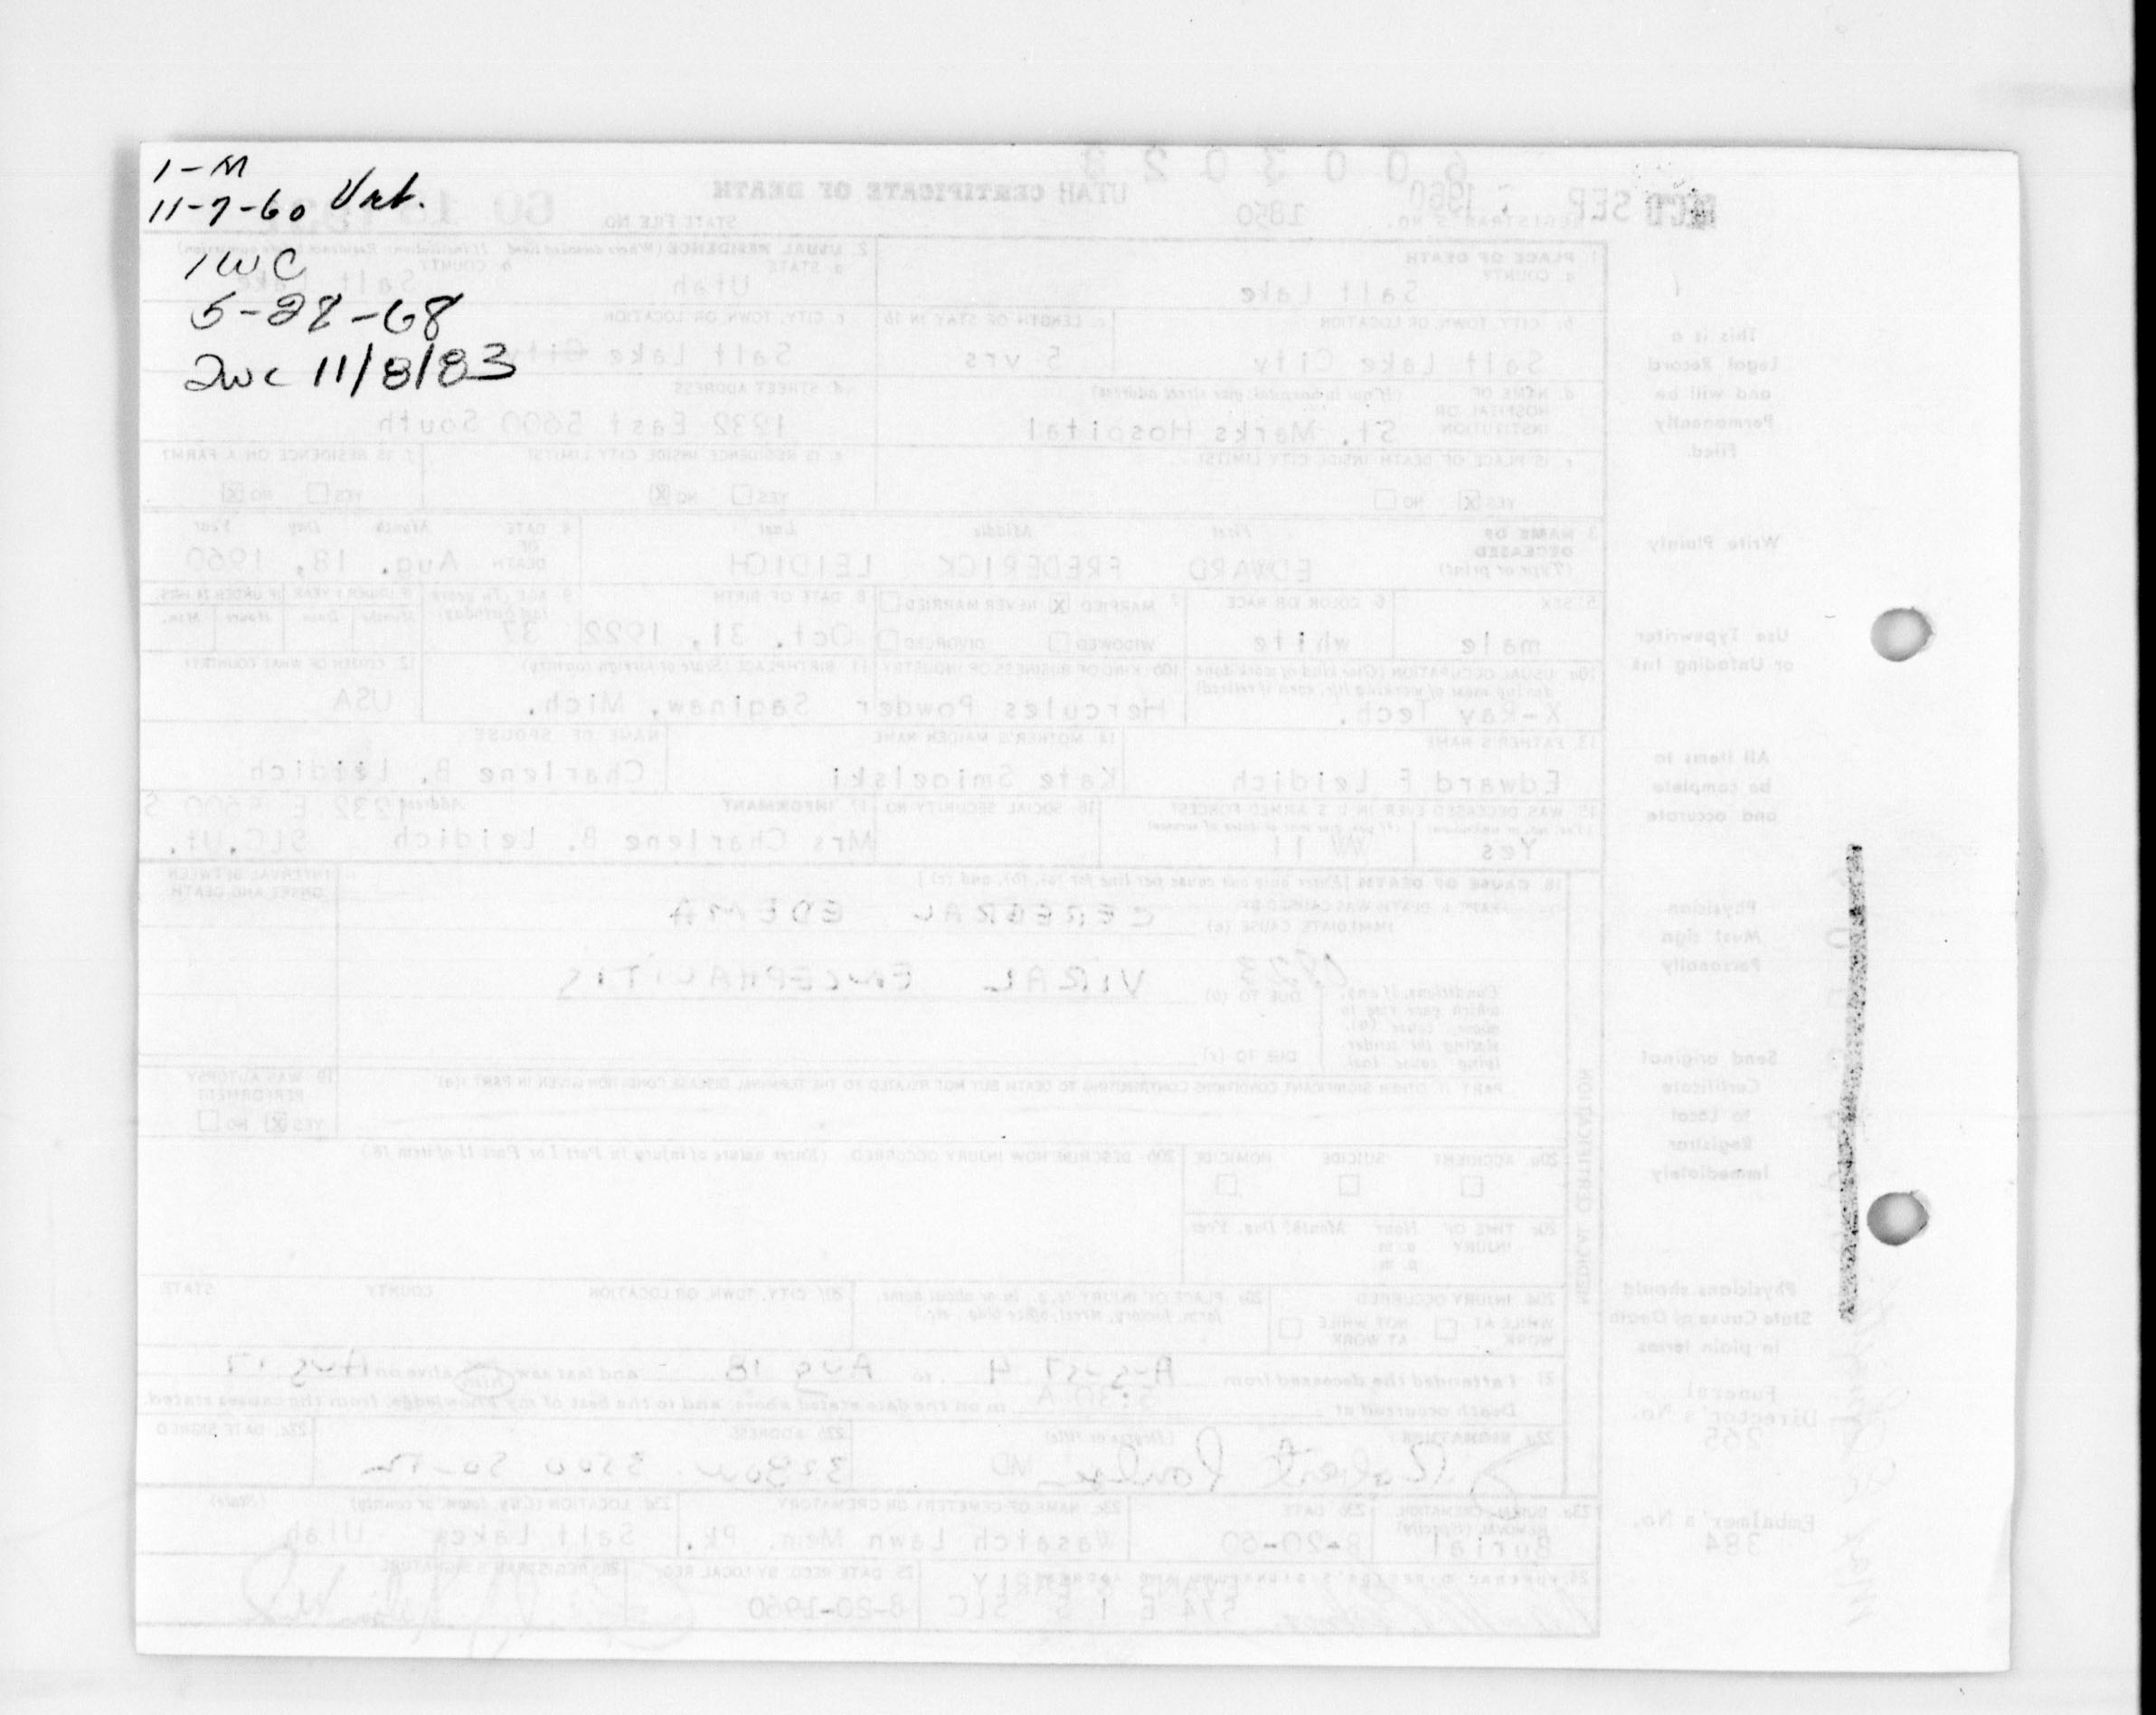 1-M
11-7-60 Vet.
1WC
5-28-68
2wc 11/8/83
6003023
UTAH CERTIFICATE OF DEATH
RCD SEP 1960
STATE FILE NO. 60 18
REGISTRAR'S NO. 1850
1. PLACE OF DEATH
a. COUNTY
Salt Lake
2. USUAL RESIDENCE (Where deceased lived. If institution: Residence before admission)
a. STATE Utah b. COUNTY Salt Lake
b. CITY, TOWN, OR LOCATION
Salt Lake City
c. LENGTH OF STAY IN 1b
5 yrs
c. CITY, TOWN, OR LOCATION
Salt Lake City
d. NAME OF HOSPITAL OR INSTITUTION (If not in hospital, give street address)
St. Marks Hospital
d. STREET ADDRESS
1232 East 5600 South
e. IS PLACE OF DEATH INSIDE CITY LIMITS?
YES X NO
e. IS RESIDENCE INSIDE CITY LIMITS?
YES NO X
f. IS RESIDENCE ON A FARM?
YES NO X
3. NAME OF DECEASED (Type or print)
First Middle Last
EDWARD FREDERICK LEIDICH
4. DATE OF DEATH Month Day Year
Aug. 18, 1960
5. SEX
male
6. COLOR OR RACE
white
7. MARRIED X NEVER MARRIED
WIDOWED DIVORCED
8. DATE OF BIRTH
Oct. 31, 1922
9. AGE (In years last birthday)
37
IF UNDER 1 YEAR IF UNDER 24 HRS.
Months Days Hours Min.
10a. USUAL OCCUPATION (Give kind of work done during most of working life, even if retired)
X-Ray Tech.
10b. KIND OF BUSINESS OR INDUSTRY
Hercules Powder
11. BIRTHPLACE (State or foreign country)
Saginaw, Mich.
12. CITIZEN OF WHAT COUNTRY?
USA
13. FATHER'S NAME
Edward F Leidich
14. MOTHER'S MAIDEN NAME
Kate Smigelski
NAME OF SPOUSE
Charlene B. Leidich
15. WAS DECEASED EVER IN U.S. ARMED FORCES?
(Yes, no, or unknown) (If yes, give war or dates of service)
Yes WW II
16. SOCIAL SECURITY NO.
17. INFORMANT Address 1232 E 5600 S
Mrs Charlene B. Leidich SLC.Ut.
18. CAUSE OF DEATH [Enter only one cause per line for (a), (b), and (c)]
INTERVAL BETWEEN ONSET AND DEATH
PART I. DEATH WAS CAUSED BY:
IMMEDIATE CAUSE (a) CEREBRAL EDEMA
Conditions, if any, which gave rise to above cause (a), stating the underlying cause last.
DUE TO (b) VIRAL ENCEPHALITIS
DUE TO (c)
PART II. OTHER SIGNIFICANT CONDITIONS CONTRIBUTING TO DEATH BUT NOT RELATED TO THE TERMINAL DISEASE CONDITION GIVEN IN PART I(a)
19. WAS AUTOPSY PERFORMED?
YES X NO
20a. ACCIDENT SUICIDE HOMICIDE
20b. DESCRIBE HOW INJURY OCCURRED. (Enter nature of injury in Part I or Part II of item 18.)
20c. TIME OF INJURY Hour Month, Day, Year
a.m.
p.m.
20d. INJURY OCCURRED
WHILE AT WORK NOT WHILE AT WORK
20e. PLACE OF INJURY (e.g., in or about home, farm, factory, street, office bldg., etc.)
20f. CITY, TOWN, OR LOCATION COUNTY STATE
21. I attended the deceased from August 4 to Aug 18 and last saw him alive on Aug 17
Death occurred at 5:30 A m on the date stated above, and to the best of my knowledge, from the causes stated.
22a. SIGNATURE (Degree or title)
MD
22b. ADDRESS
22c. DATE SIGNED
23a. BURIAL, CREMATION, REMOVAL (Specify)
Burial
23b. DATE
8-20-60
23c. NAME OF CEMETERY OR CREMATORY
Wasatch Lawn Mem. Pk.
23d. LOCATION (City, town, or county) (State)
Salt Lake Utah
24. FUNERAL DIRECTOR'S SIGNATURE AND ADDRESS
EVANS & EARLY
574 E 1 S SLC
25. DATE RECD. BY LOCAL REG.
8-20-1960
26. REGISTRAR'S SIGNATURE
MEDICAL CERTIFICATION
This is a
Legal Record
and will be
Permanently
Filed.
Write Plainly
Use Typewriter
or Unfading Ink
All items to
be complete
and accurate
Physician
Must sign
Personally
Send original
Certificate
to Local
Registrar
Immediately
Physicians should
State Cause of Death
in plain terms
Funeral
Director's No.
265
Embalmer's No.
384